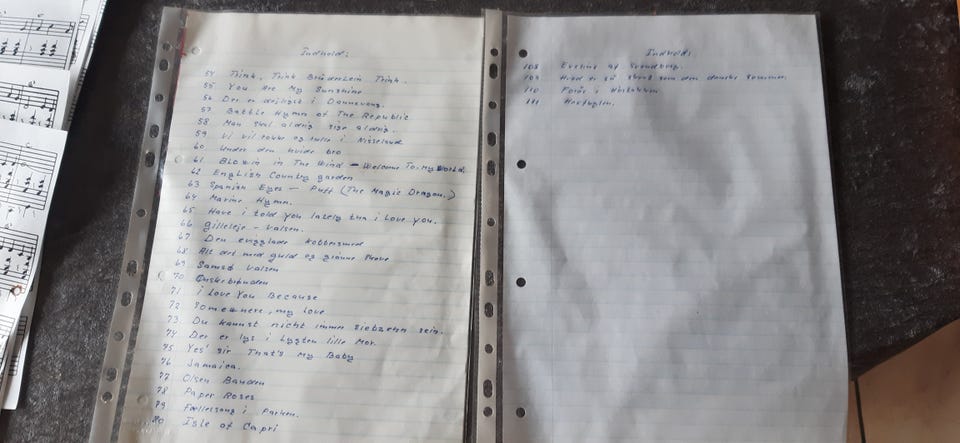 Indhold:
54 Trink, Trink Brüderlein Trink.
55 You Are My Sunshine
56 Der er dejligt i Donnevang.
57 Battle Hymn of The Republic
58 Man skal aldrig sige aldrig.
59 Vi vil rokke og rulle i Nisseland
60 Under den hvide bro
61 Blowin in The Wind - Welcome To, My World.
62 English Country garden
63 Spanish Eyes - Puff (The Magic Dragon.)
64 Marine Hymn.
65 Have i told you lately tha i Love you.
66 Gilleleje - Valsen.
67 Den evigglade kobbersmed
68 Alt det med guld og grønne
69 Samsø Valsen
70 Ønskebrønden
71 i Love You Because
72 Somewhere, my Love
73 Du kannst nicht immer Siebzehn sein.
74 Der er lys i Lygten lille Mor.
75 Yes' sir That's My Baby
76 Jamaica.
77 Olsen Banden
78 Paper Roses
79 Fællessang i Parken.
80 Isle of Capri
Indhold:
108 af Svendborg.
109 Hvad er så som den danske Sommer.
110 Forår i
111